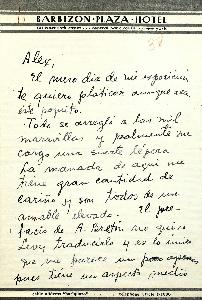 BARBIZON-PLAZA-HOTEL
Alex,
El mero día de mi exposición
te quiero platicar aunque sea
este poquito.
Todo se arregló a las mil
maravillas y realmente me
cargo una suerte lépera
La manada de aquí me
tiene gran cantidad de
cariño y son todos de un
amable elevado. El pre-
facio de A. Breton no quiso
Levy traducirlo y es lo único
que me parece un poco apenas
pues tiene un aspecto medio